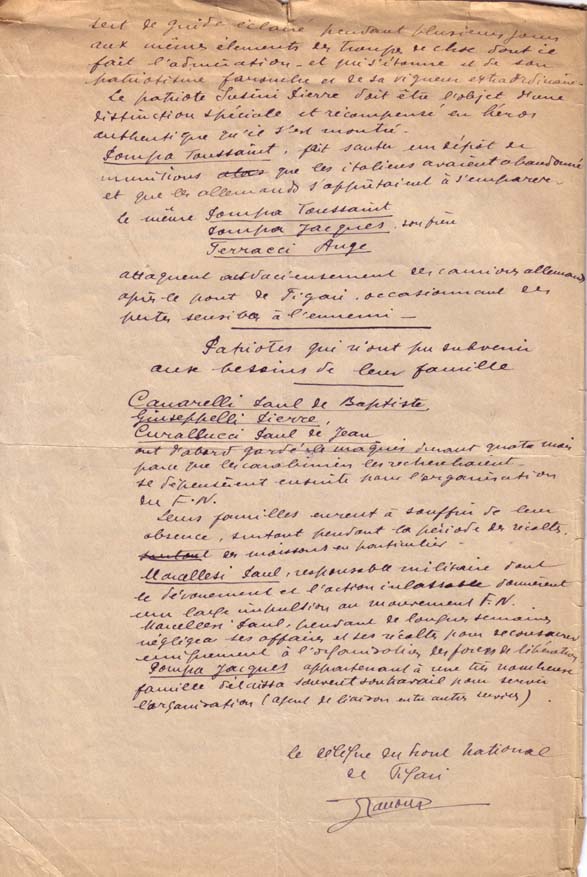 sert de guide éclairé pendant plusieurs jours
aux mêmes éléments des troupes de choc dont il
fait l'admiration - et qui s'étonne et de son
patriotisme farouche et de sa vigueur extraordinaire -
Le patriote Susini Pierre doit être l'objet d'une
distinction spéciale et récompensé en héros
authentique qu'il s'est montré -
Pompa Toussaint, fait sauter un dépôt de
munitions que les italiens avaient abandonné
et que les allemands s'apprêtaient à s'emparer -
Le même Pompa Toussaint
Pompa Jacques, son frère
Terracci Ange
attaquent audacieusement des camions allemands
après le pont de Figari, occasionnant des
pertes sensibles à l'ennemi -
Patriotes qui n'ont pu subvenir
aux besoins de leur famille
Canarelli Paul de Baptiste,
Giuseppelli Pierre,
Curallucci Paul de Jean
ont d'abord gardé le maquis durant quatre mois
parce que les carabiniers les recherchaient -
se dépensèrent ensuite pour l'organisation
du F.N.
Leurs familles eurent à souffrir de leur
absence, surtout pendant la période des récoltes,
surtout des moissons en particulier -
Marcellesi Paul, responsable militaire dont
le dévouement et l'action inlassable donnèrent
une large impulsion au mouvement F.N.
Marcellesi Paul, pendant de longues semaines
négligea ses affaires et ses récoltes pour se consacrer
uniquement à l'organisation des forces de libération
Pompa Jacques appartenant à une très nombreuse
famille délaissa souvent son travail pour servir
l'organisation (agent de liaison entre autres services).
Le délégué du Front National
de Figari